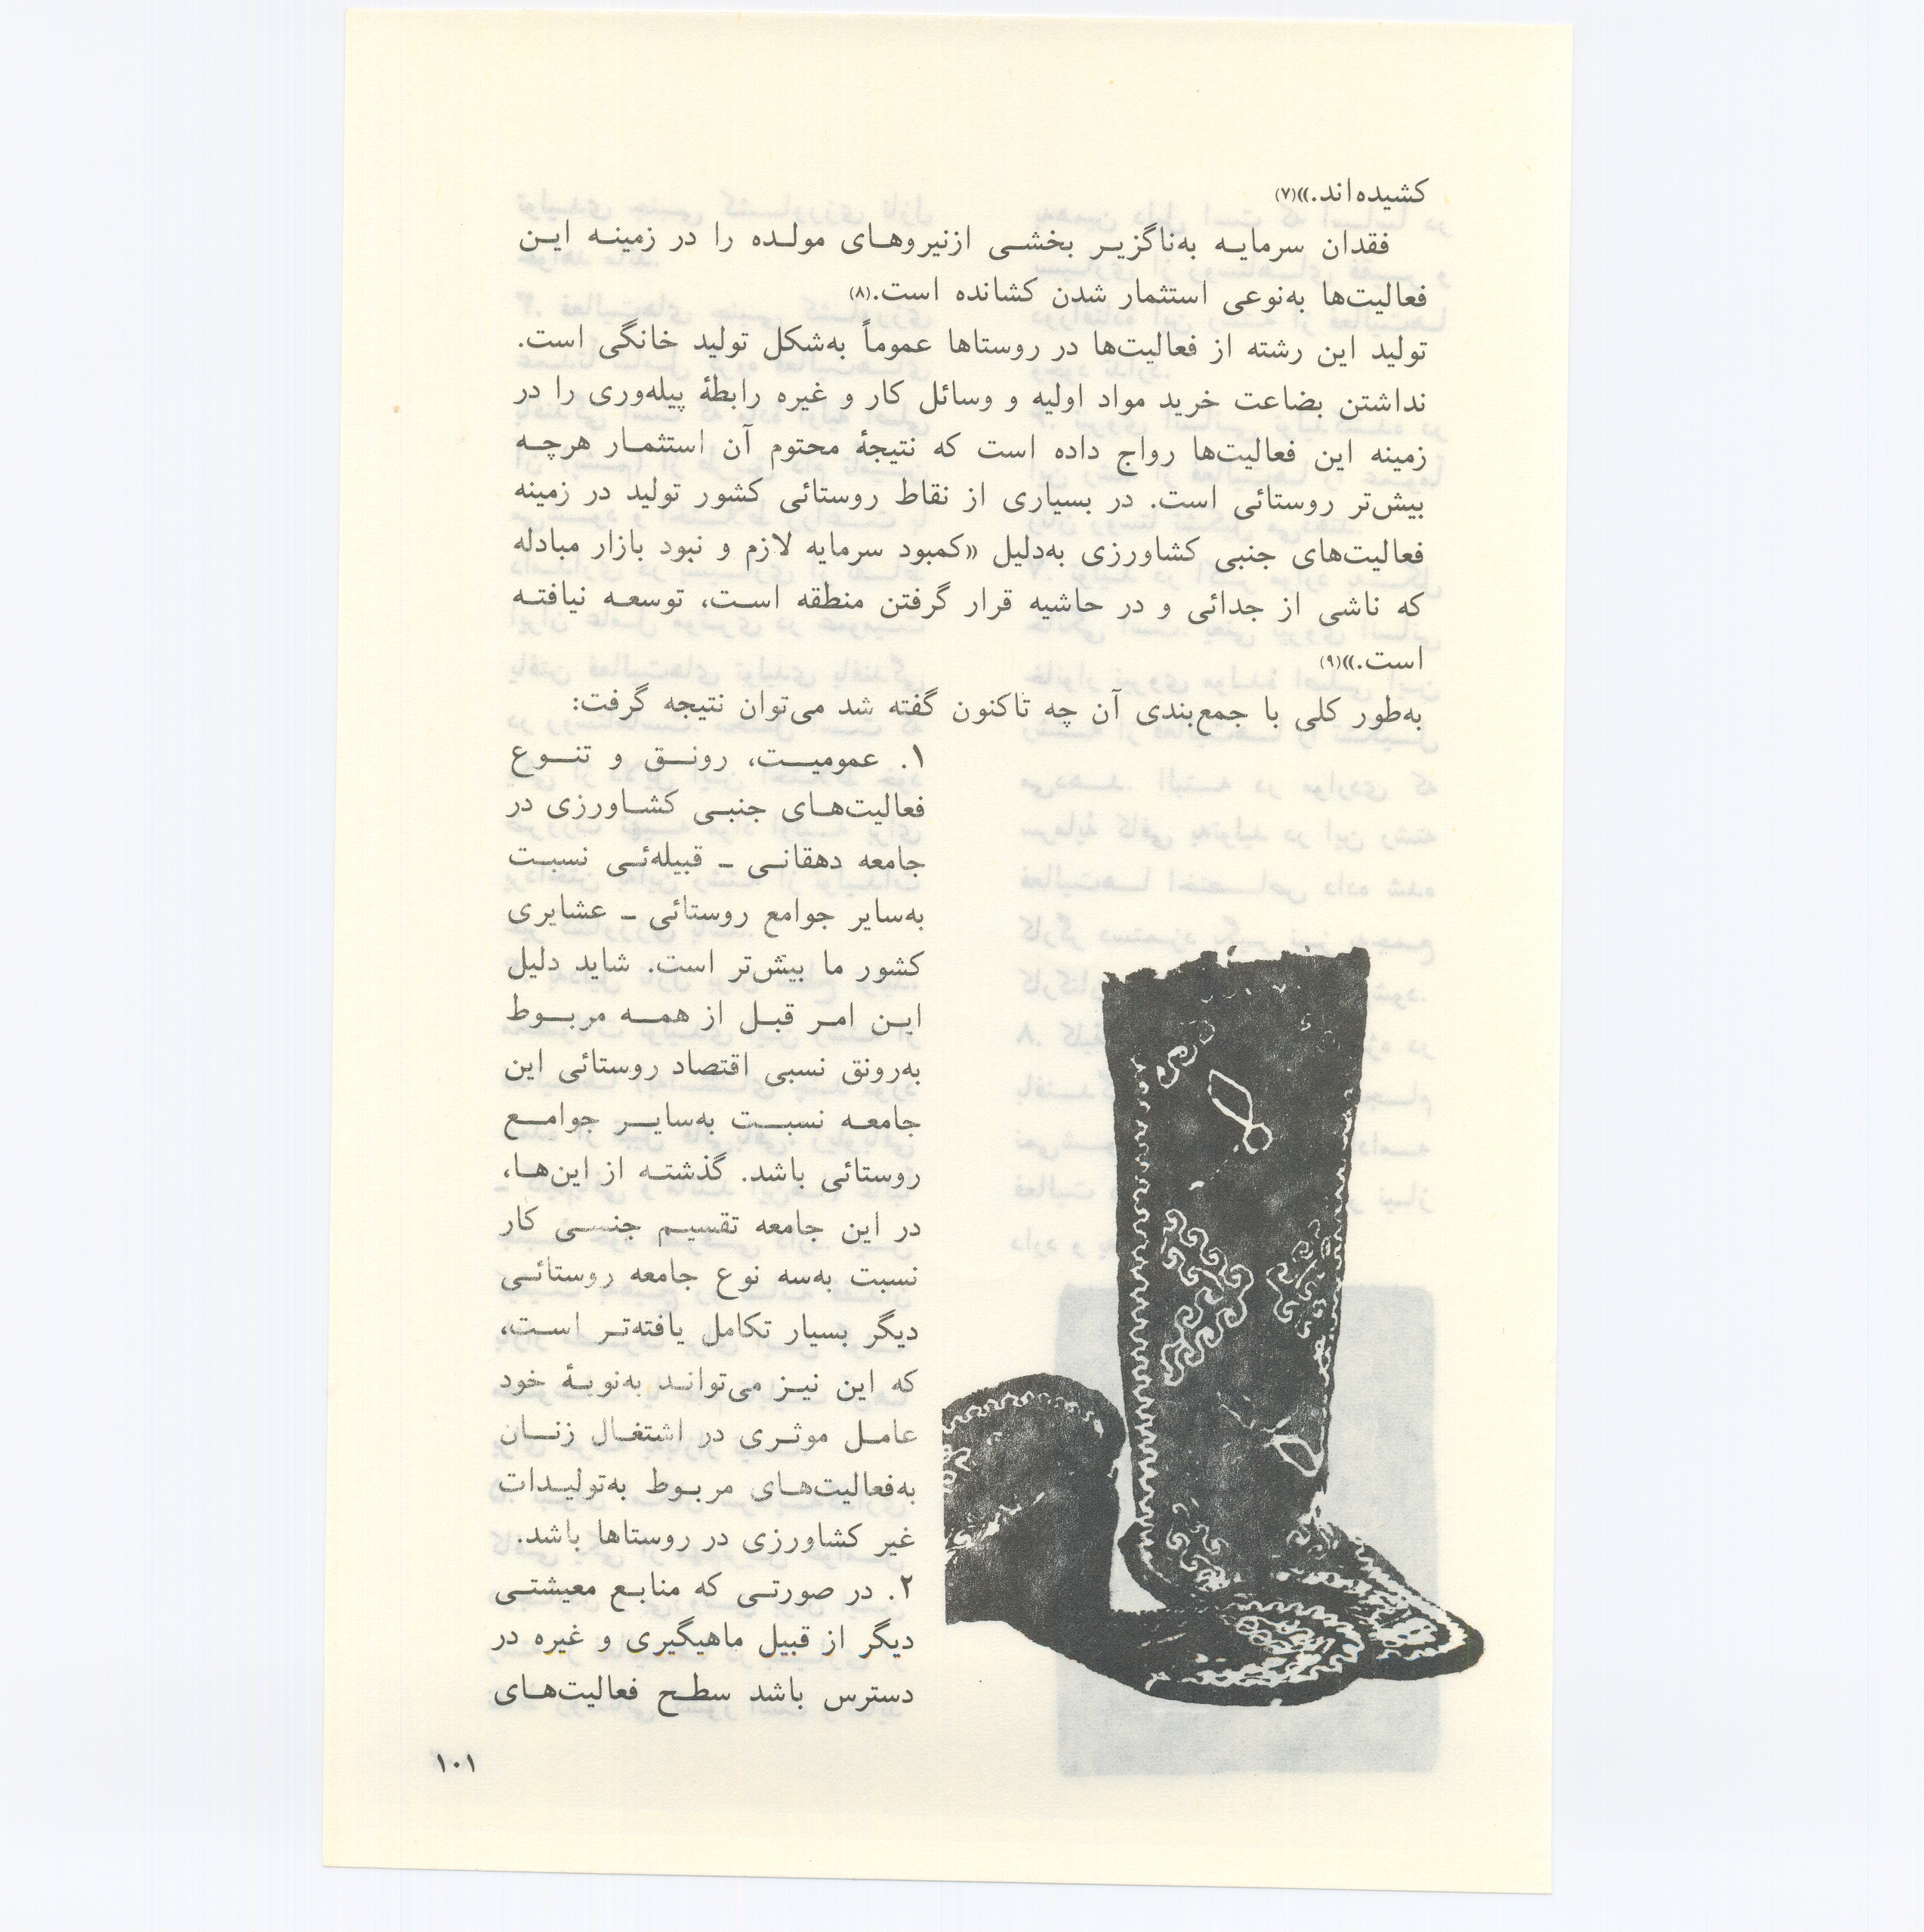 کشیده‌اند.»(۷)
فقدان سرمایـه به‌ناگزیـر بخشـی ازنیروهـای مولـده را در زمینـه ایـن
فعالیت‌ها به‌نوعی استثمار شدن کشانده است.(۸)
تولید این رشته از فعالیت‌ها در روستاها عموماً به‌شکل تولید خانگی است.
نداشتن بضاعت خرید مواد اولیه و وسائل کار و غیره رابطهٔ پیله‌وری را در
زمینه این فعالیت‌ها رواج داده است که نتیجهٔ محتوم آن استثمـار هرچـه
بیش‌تر روستائی است. در بسیاری از نقاط روستائی کشور تولید در زمینه
فعالیت‌های جنبی کشاورزی به‌دلیل «کمبود سرمایه لازم و نبود بازار مبادله
که ناشی از جدائی و در حاشیه قرار گرفتن منطقه اسـت، توسعـه نیافتـه
است.»(۹)
به‌طور کلی با جمع‌بندی آن چه تاکنون گفته شد می‌توان نتیجه گرفت:
۱. عمومیـت، رونـق و تنـوع
فعالیت‌هـای جنبـی کشـاورزی در
جامعه دهقانـی ـ قبیله‌ئـی نسبـت
به‌سایر جوامع روستائی ـ عشایری
کشور ما بیش‌تر است. شاید دلیل
ایـن امـر قبـل از همـه مربـوط
به‌رونق نسبی اقتصاد روستائی این
جامعـه نسبـت به‌سایـر جوامـع
روستائی باشد. گذشتـه از این‌هـا،
در این جامعه تقسیـم جنسـی کار
نسبت به‌سه نوع جامعه روستائـی
دیگر بسیار تکامل یافته‌تـر اسـت،
که این نیـز می‌توانـد به‌نوبـهٔ خود
عامـل موثـری در اشتغـال زنـان
به‌فعالیت‌هـای مربـوط به‌تولیـدات
غیر کشاورزی در روستاها باشد.
۲. در صورتـی که منابـع معیشتـی
دیگر از قبیل ماهیگیری و غیره در
دسترس باشد سطـح فعالیت‌هـای
۱۰۱